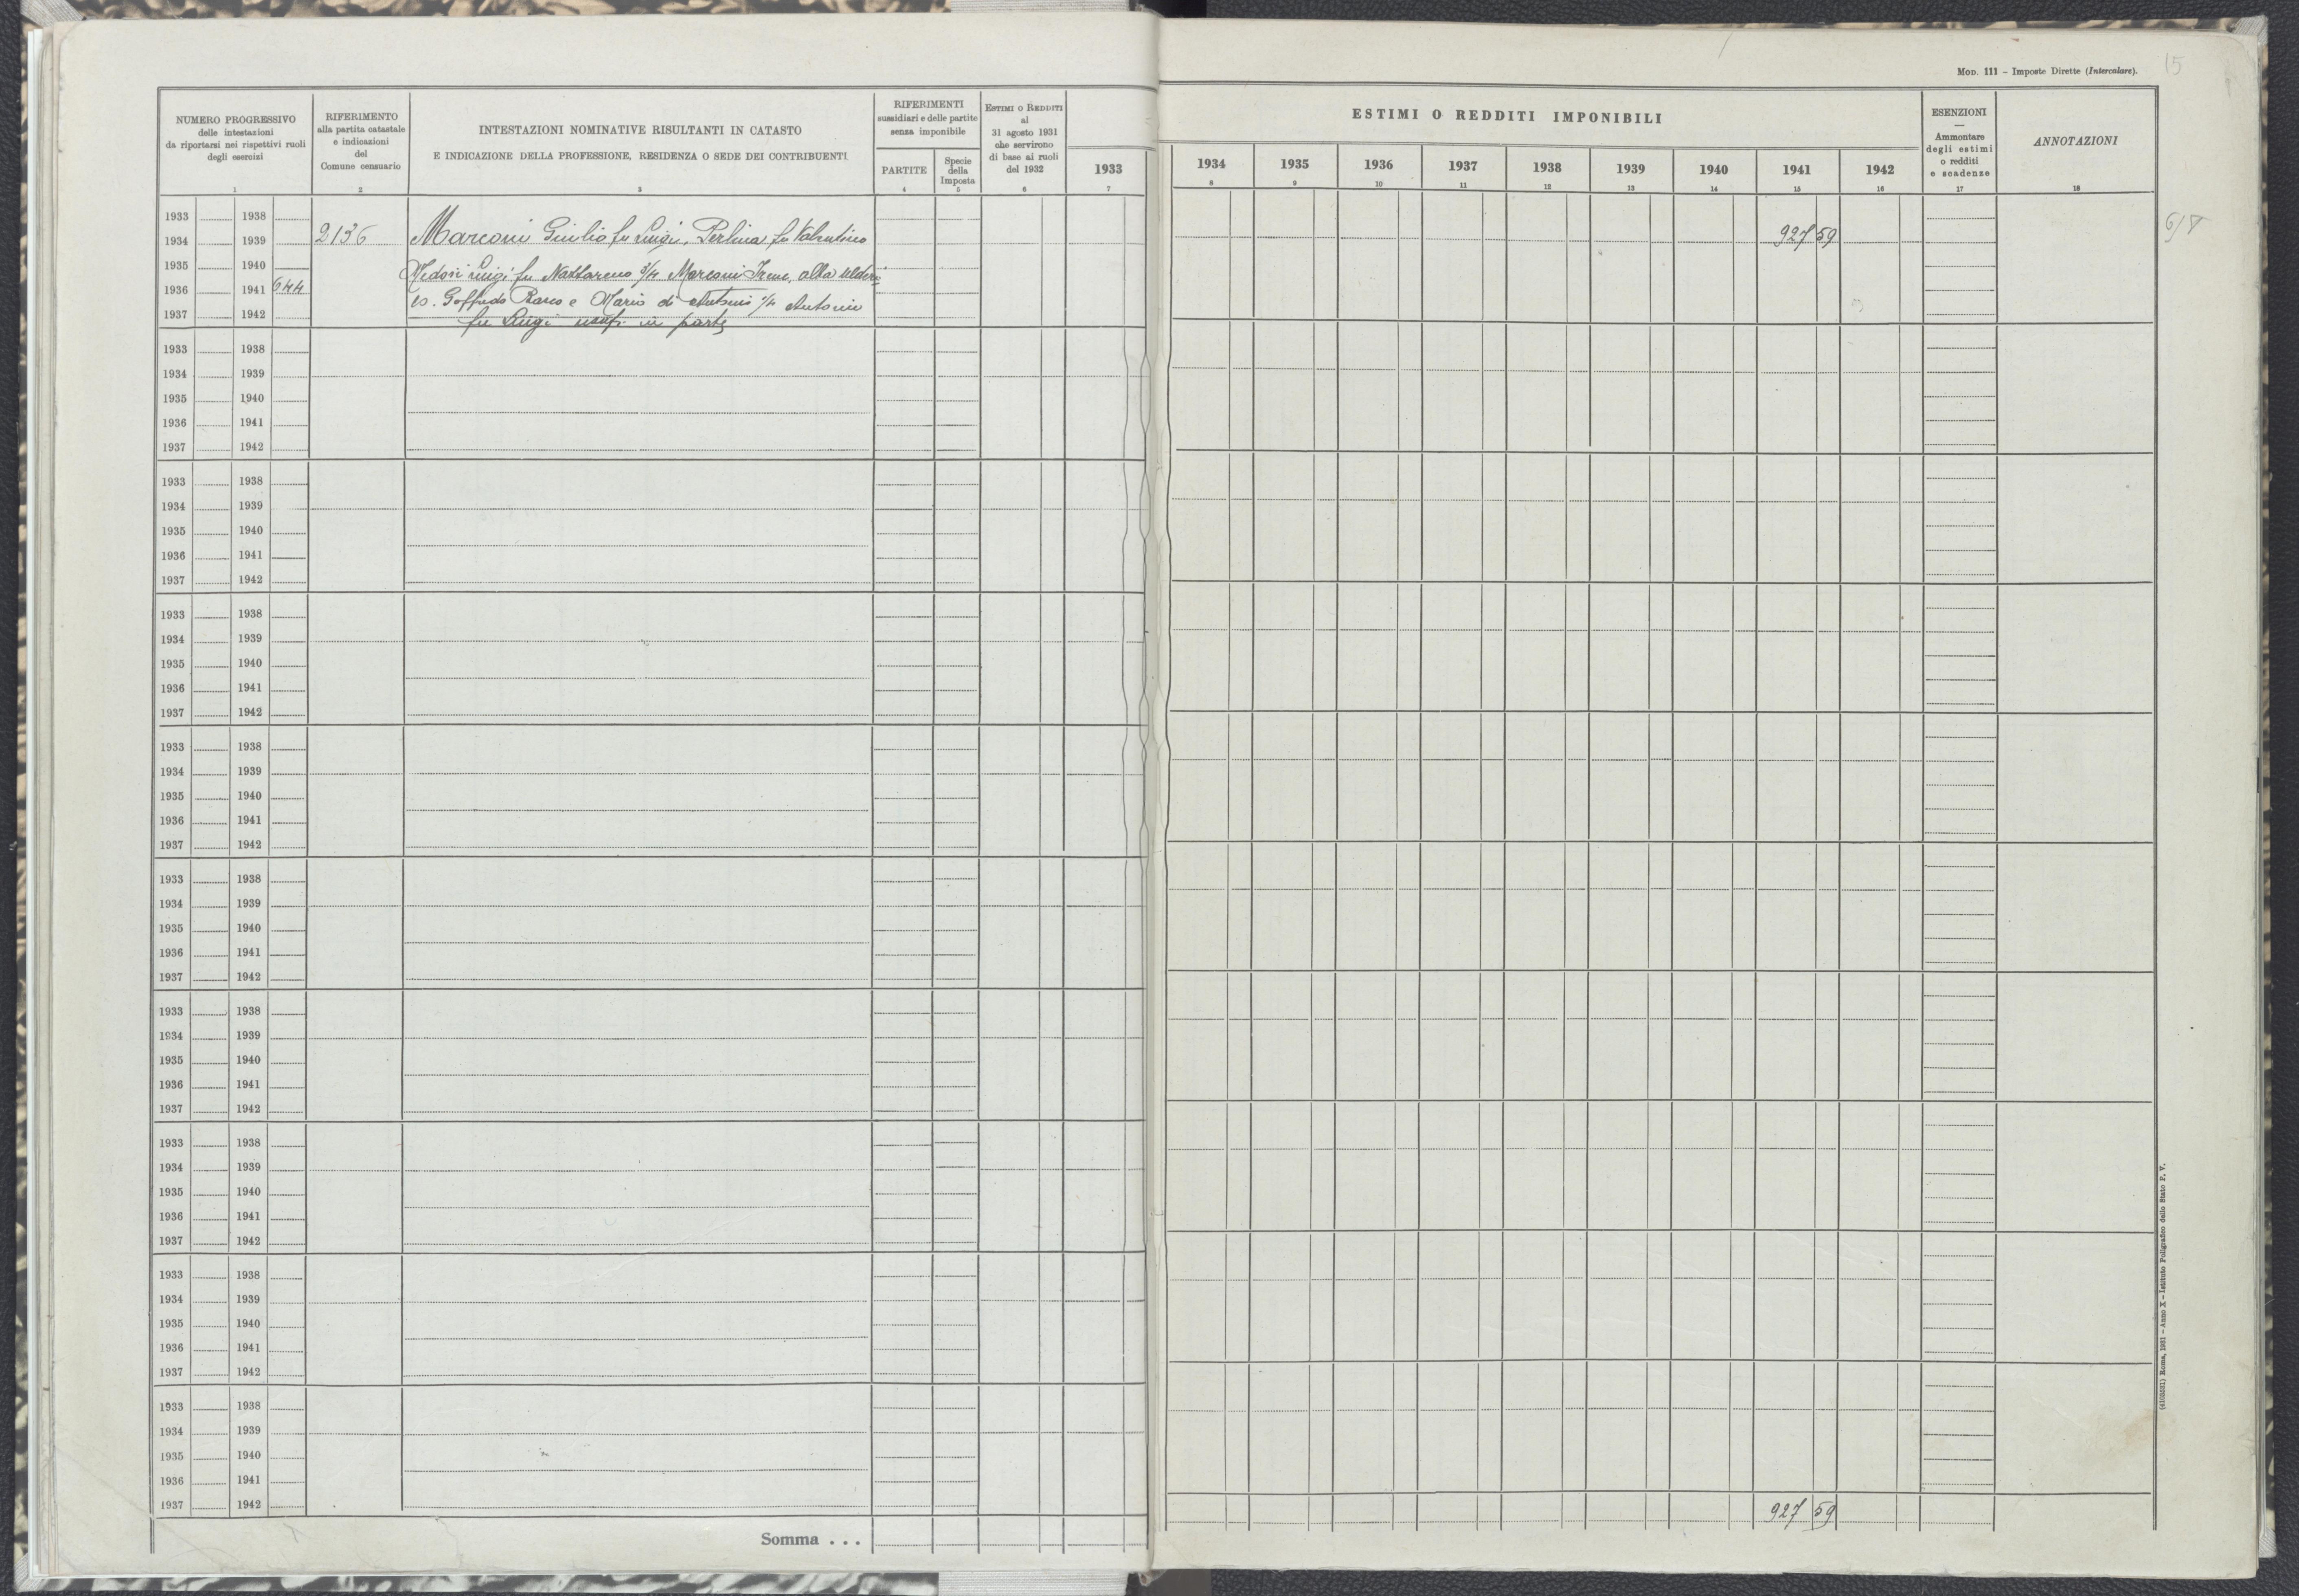 Mod. 111 – Imposte Dirette (Intercalare).
15
NUMERO PROGRESSIVO
delle intestazioni
da riportarsi nei rispettivi ruoli
degli esercizi
1
RIFERIMENTO
alla partita catastale
e indicazioni
del
Comune censuario
2
INTESTAZIONI NOMINATIVE RISULTANTI IN CATASTO
E INDICAZIONE DELLA PROFESSIONE, RESIDENZA O SEDE DEI CONTRIBUENTI
3
RIFERIMENTI
sussidiari e delle partite
senza imponibile
PARTITE
4
Specie
della
Imposta
5
Estimi o Redditi
al
31 agosto 1931
che servirono
di base ai ruoli
del 1932
6
ESTIMI O REDDITI IMPONIBILI
1933
7
1934
8
1935
9
1936
10
1937
11
1938
12
1939
13
1940
14
1941
15
1942
16
ESENZIONI
—
Ammontare
degli estimi
o redditi
e scadenze
17
ANNOTAZIONI
18
1933 1938
1934 1939 2136 Marconi Giulio fu Luigi, Perlina fu Valentino 927 59
1935 1940 Luigi fu Nazzareno 3/4 Marconi Irene,
1936 1941 644 Goffredo e Mario di Antonio 1/4 Antonio
1937 1942
fu Luigi usuf. in parte
1933 1938
1934 1939
1935 1940
1936 1941
1937 1942
1933 1938
1934 1939
1935 1940
1936 1941
1937 1942
1933 1938
1934 1939
1935 1940
1936 1941
1937 1942
1933 1938
1934 1939
1935 1940
1936 1941
1937 1942
1933 1938
1934 1939
1935 1940
1936 1941
1937 1942
1933 1938
1934 1939
1935 1940
1936 1941
1937 1942
1933 1938
1934 1939
1935 1940
1936 1941
1937 1942
1933 1938
1934 1939
1935 1940
1936 1941
1937 1942
1933 1938
1934 1939
1935 1940
1936 1941
1937 1942
Somma . . . 927 59
(4103581) Roma, 1931 – Anno X – Istituto Poligrafico dello Stato P. V.